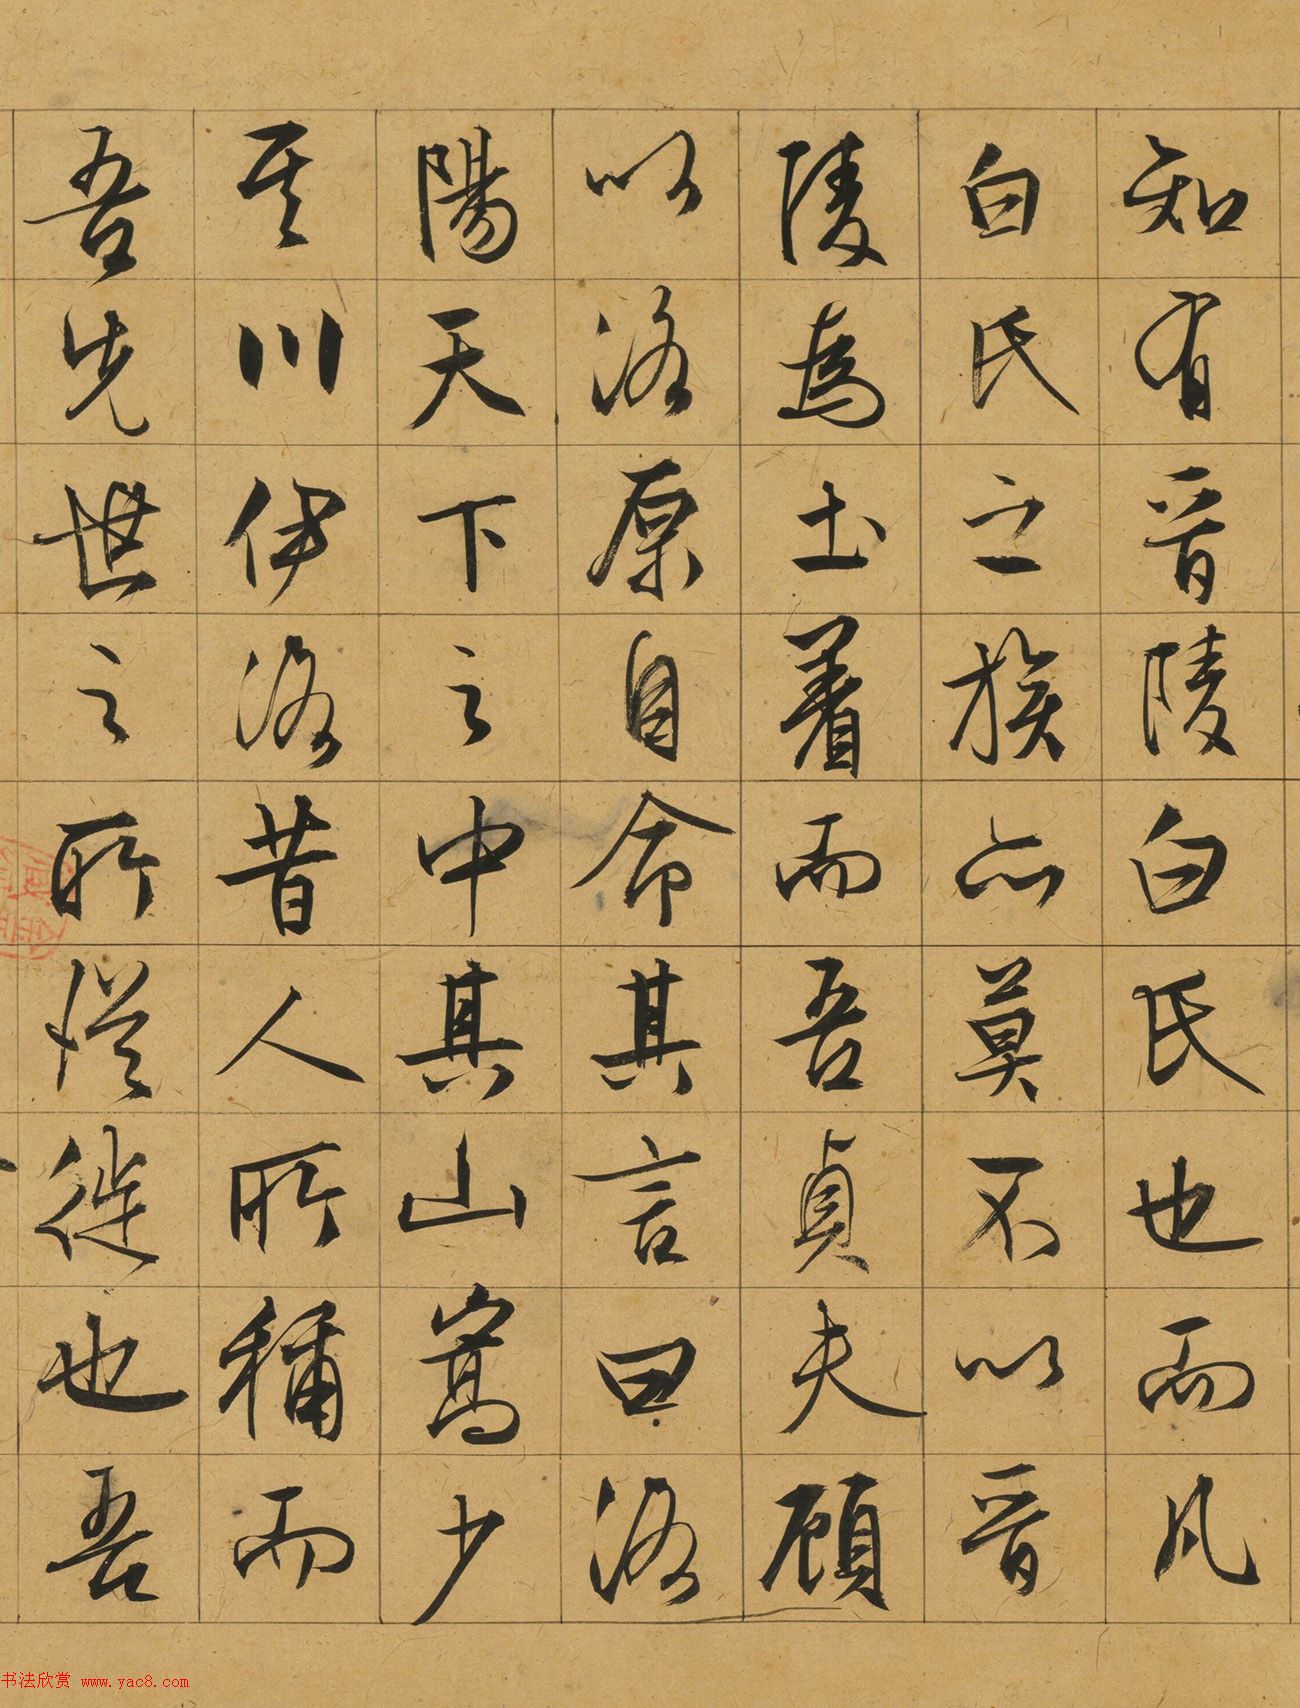 知有晉陵白氏也而凡
白氏之族亦莫不以晉
陵為土著而吾貞夫顧
以洛原自命其言曰洛
陽天下之中其山嵩少
其川伊洛昔人所稱而
吾先世之所從徙也吾
书法欣赏 www.yac8.com